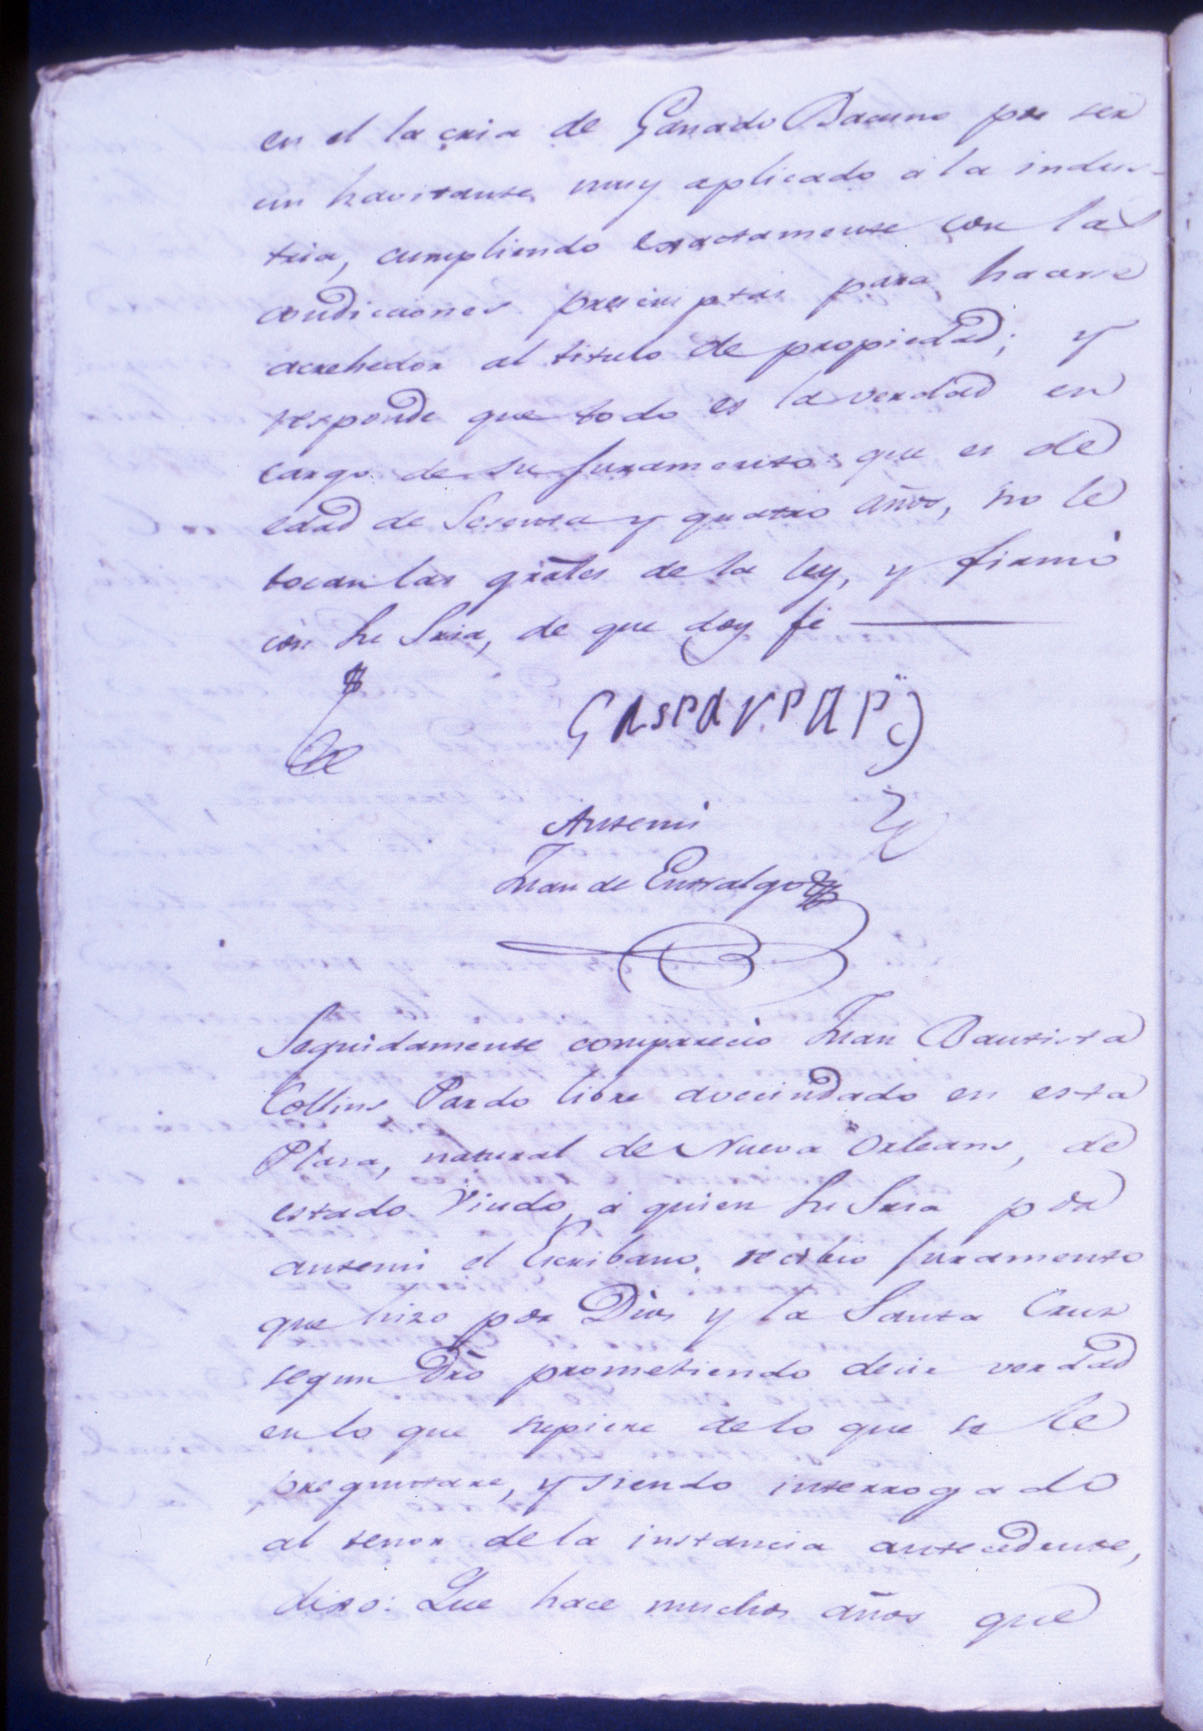 en el la cria de Ganado Bacuno por ser
un havitante muy aplicado a la indus-
tria, cumpliendo exactamente con las
condiciones prescriptas para hacerse
acrehedor al titulo de propiedad; y
responde que todo es la verdad en
cargo de su juramento: que es de
edad de Sesenta y quatro años, no le
tocan las grãles de la ley, y firmó
con Su Sria, de que doy fé
GASPAR PAPi
Antemi
Juan de Entralgo
Seguidamente comparecio Juan Bautista
Collins, Pardo libre avecindado en esta
Plaza, natural de Nueva Orleans, de
estado Viudo, á quien Su Sria por
antemi el Escribano, recibio juramento
que hizo por Dios y la Santa Cruz
segun Dro prometiendo decir verdad
en lo que supiere de lo que se le
preguntare, y siendo interrogado
al tenor de la instancia antecedente,
dixo: Que hace muchos años que